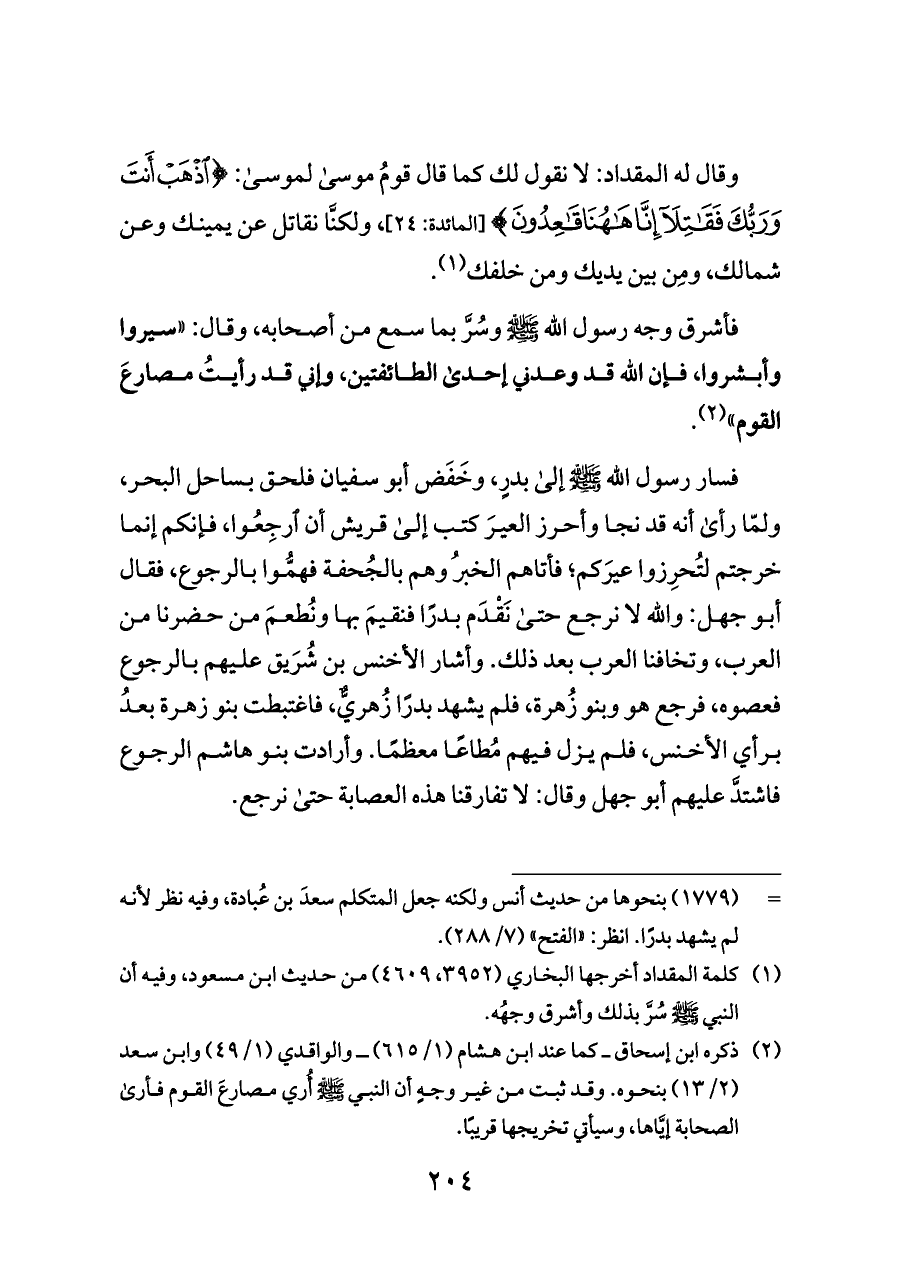 وقال له المقداد: لا نقول لك كما قال قومُ موسىٰ لموسىٰ: ﴿ٱذۡهَبۡ أَنتَ
وَرَبُّكَ فَقَٰتِلَآ إِنَّا هَٰهُنَا قَٰعِدُونَ﴾ [المائدة: ٢٤]، ولكنَّا نقاتل عن يمينك وعن
شمالك، ومِن بين يديك ومن خلفك(١).
فأشرق وجه رسول الله ﷺ وسُرَّ بما سمع من أصحابه، وقال: «سيروا
وأبشروا، فإن الله قد وعدني إحدىٰ الطائفتين، وإني قد رأيتُ مصارعَ
القوم»(٢).
فسار رسول الله ﷺ إلىٰ بدرٍ، وخَفَض أبو سفيان فلحق بساحل البحر،
ولمّا رأىٰ أنه قد نجا وأحرز العيرَ كتب إلىٰ قريش أن ٱرجِعُوا، فإنكم إنما
خرجتم لتُحرِزوا عيرَكم؛ فأتاهم الخبرُ وهم بالجُحفة فهمُّوا بالرجوع، فقال
أبو جهل: والله لا نرجع حتىٰ نَقْدَم بدرًا فنقيمَ بها ونُطعمَ من حضرنا من
العرب، وتخافنا العرب بعد ذلك. وأشار الأخنس بن شُرَيق عليهم بالرجوع
فعصوه، فرجع هو وبنو زُهرة، فلم يشهد بدرًا زُهريٌّ، فاغتبطت بنو زهرة بعدُ
برأي الأخنس، فلم يزل فيهم مُطاعًا معظمًا. وأرادت بنو هاشم الرجوع
فاشتدَّ عليهم أبو جهل وقال: لا تفارقنا هذه العصابة حتىٰ نرجع.
= (١٧٧٩) بنحوها من حديث أنس ولكنه جعل المتكلم سعدَ بن عُبادة، وفيه نظر لأنه
لم يشهد بدرًا. انظر: «الفتح» (٧/ ٢٨٨).
(١) كلمة المقداد أخرجها البخاري (٣٩٥٢، ٤٦٠٩) من حديث ابن مسعود، وفيه أن
النبي ﷺ سُرَّ بذلك وأشرق وجهُه.
(٢) ذكره ابن إسحاق ـ كما عند ابن هشام (١/ ٦١٥) ـ والواقدي (١/ ٤٩) وابن سعد
(٢/ ١٣) بنحوه. وقد ثبت من غير وجهٍ أن النبي ﷺ أُري مصارعَ القوم فأرىٰ
الصحابة إيَّاها، وسيأتي تخريجها قريبًا.
٢٠٤